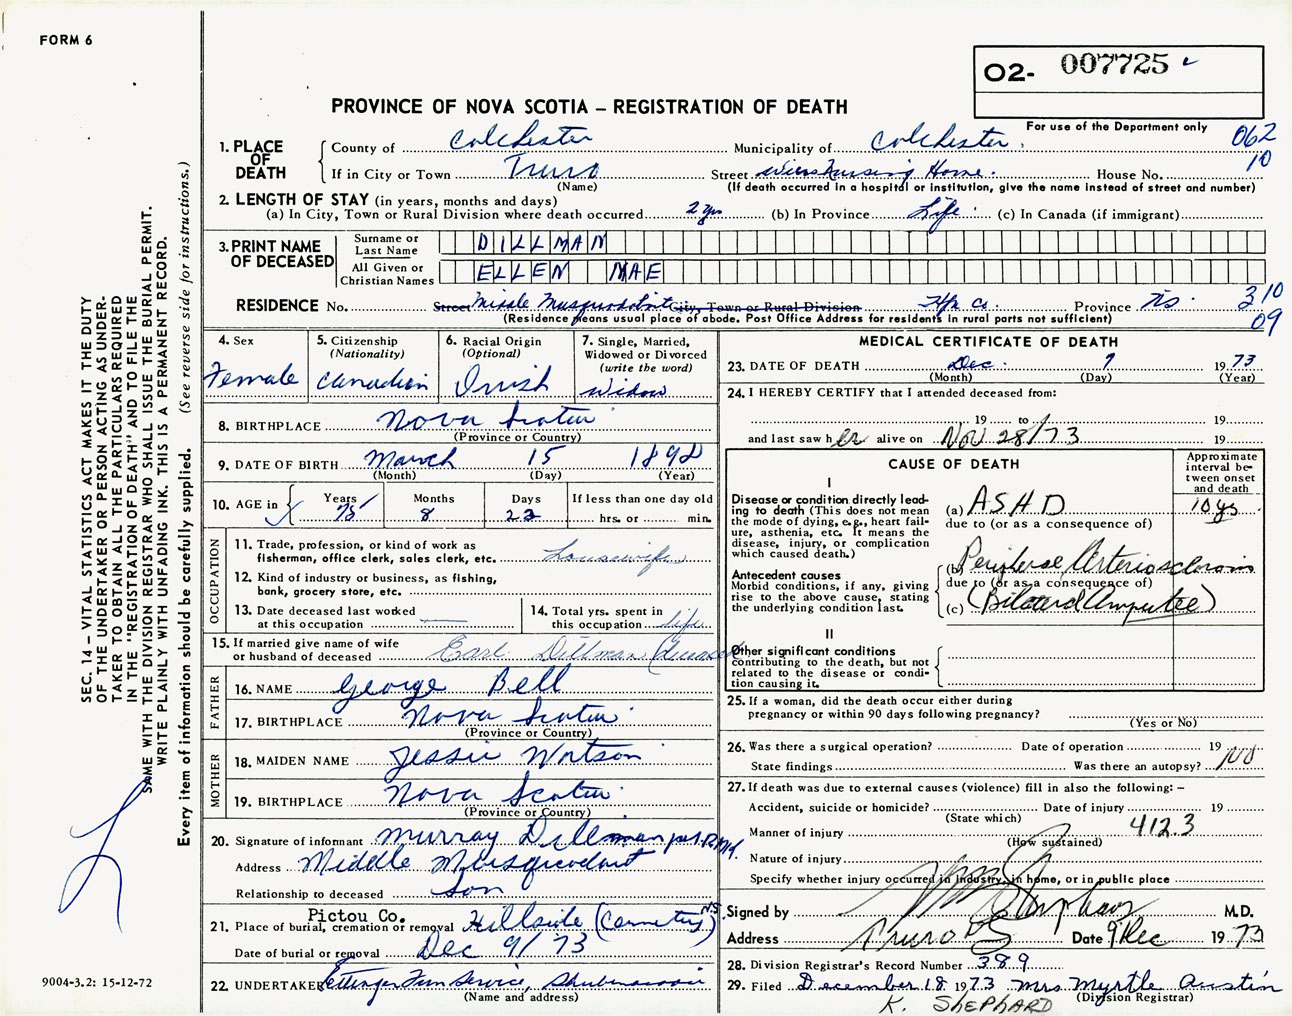 FORM 6
O2- 007725
PROVINCE OF NOVA SCOTIA – REGISTRATION OF DEATH
For use of the Department only
062
10
1. PLACE OF DEATH
County of Colchester Municipality of Colchester
If in City or Town Truro Street Nursing Home. House No.
(Name) (If death occurred in a hospital or institution, give the name instead of street and number)
2. LENGTH OF STAY (in years, months and days)
(a) In City, Town or Rural Division where death occurred 2 yrs (b) In Province Life (c) In Canada (if immigrant)
3. PRINT NAME OF DECEASED
Surname or Last Name DILLMAN
All Given or Christian Names ELLEN MAE
RESIDENCE No. Street Middle Musquodoboit City, Town or Rural Division Hfx Co. Province NS.
310
09
(Residence means usual place of abode. Post Office Address for residents in rural parts not sufficient)
4. Sex
Female
5. Citizenship
(Nationality)
Canadian
6. Racial Origin
(Optional)
Irish
7. Single, Married, Widowed or Divorced
(write the word)
Widow
8. BIRTHPLACE Nova Scotia
(Province or Country)
9. DATE OF BIRTH March 15 1898
(Month) (Day) (Year)
10. AGE in
Years 75
Months 8
Days 22
If less than one day old
hrs. or min.
OCCUPATION
11. Trade, profession, or kind of work as
fisherman, office clerk, sales clerk, etc. housewife
12. Kind of industry or business, as fishing,
bank, grocery store, etc.
13. Date deceased last worked
at this occupation
14. Total yrs. spent in
this occupation life
15. If married give name of wife
or husband of deceased Earl Dillman
FATHER
16. NAME George Bell
17. BIRTHPLACE Nova Scotia
(Province or Country)
MOTHER
18. MAIDEN NAME Jessie Watson
19. BIRTHPLACE Nova Scotia
(Province or Country)
20. Signature of informant Murray Dillman
Address Middle Musquodoboit
Relationship to deceased Son
Pictou Co. N.S.
21. Place of burial, cremation or removal Hillside (Cemetery)
Date of burial or removal Dec 9/73
22. UNDERTAKER Ettinger Fun Service, Shubenacadie
(Name and address)
MEDICAL CERTIFICATE OF DEATH
23. DATE OF DEATH Dec. 7 1973
(Month) (Day) (Year)
24. I HEREBY CERTIFY that I attended deceased from:
19 to 19
and last saw her alive on Nov 28/73 19
CAUSE OF DEATH
Approximate interval between onset and death
I
Disease or condition directly lead-
ing to death (This does not mean
the mode of dying, e.g., heart fail-
ure, asthenia, etc. It means the
disease, injury, or complication
which caused death.)
(a) ASHD 10 yrs
due to (or as a consequence of)
Antecedent causes
Morbid conditions, if any, giving
rise to the above cause, stating
the underlying condition last.
(b) Peripheral Arteriosclerosis
due to (or as a consequence of)
(c) (Bilateral Amputee)
II
Other significant conditions
contributing to the death, but not
related to the disease or condi-
tion causing it.
25. If a woman, did the death occur either during
pregnancy or within 90 days following pregnancy?
(Yes or No)
26. Was there a surgical operation? Date of operation 19
State findings Was there an autopsy? NO
27. If death was due to external causes (violence) fill in also the following: –
Accident, suicide or homicide? Date of injury 19
(State which)
412.3
Manner of injury
(How sustained)
Nature of injury
Specify whether injury occurred in industry, in home, or in public place
Signed by M.D.
Address Truro NS Date 9 Dec 1973
28. Division Registrar's Record Number 389
29. Filed December 18 1973 Mrs Myrtle Austin
(Division Registrar)
K. SHEPHARD
SEC. 14 – VITAL STATISTICS ACT MAKES IT THE DUTY
OF THE UNDERTAKER OR PERSON ACTING AS UNDER-
TAKER TO OBTAIN ALL THE PARTICULARS REQUIRED
IN THE "REGISTRATION OF DEATH" AND TO FILE THE
SAME WITH THE DIVISION REGISTRAR WHO SHALL ISSUE THE BURIAL PERMIT.
WRITE PLAINLY WITH UNFADING INK. THIS IS A PERMANENT RECORD.
Every item of information should be carefully supplied. (See reverse side for instructions.)
9004-3.2: 15-12-72